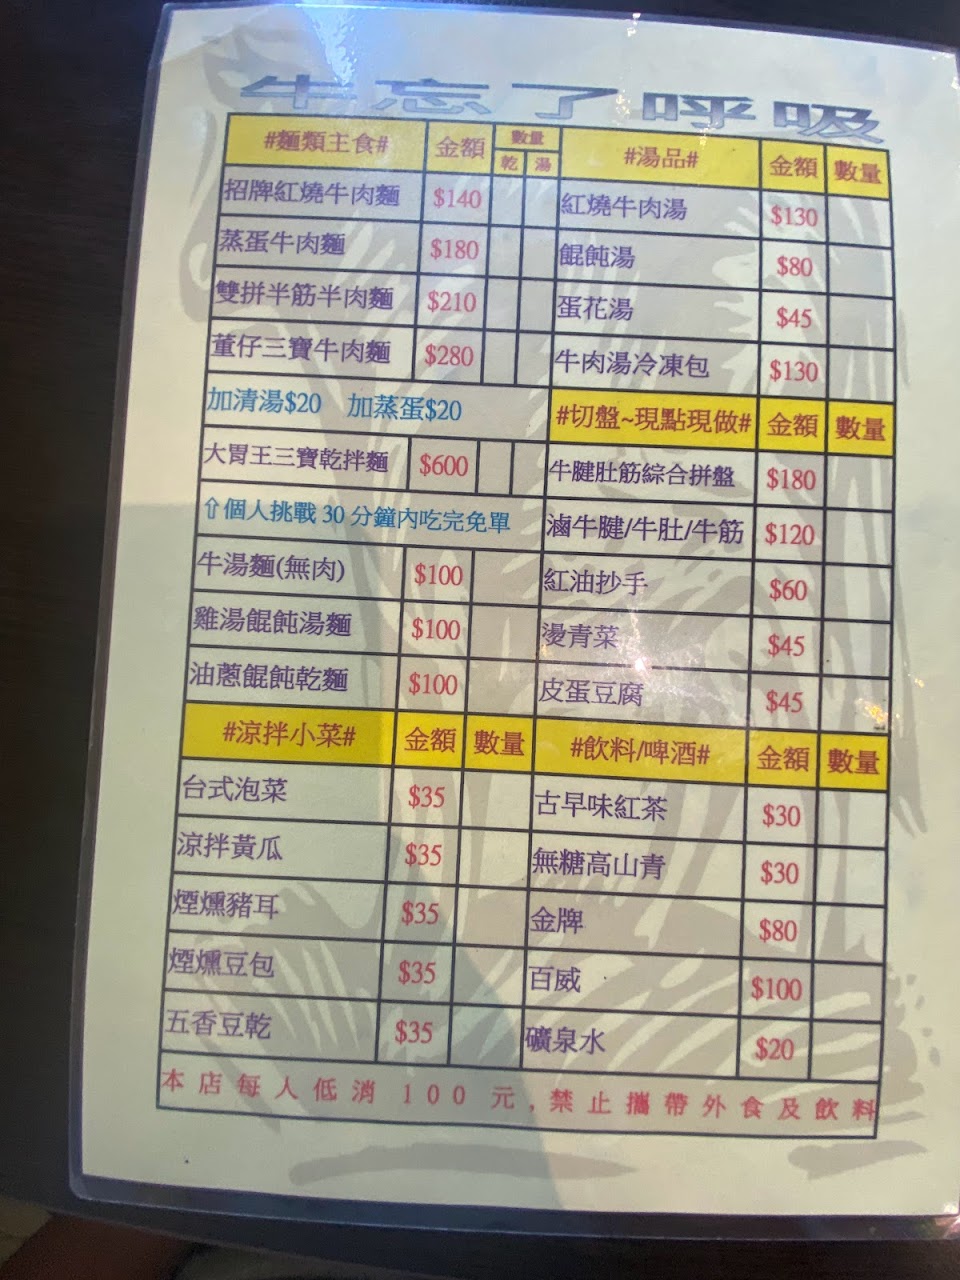 牛忘了呼吸
#麵類主食# 金額 數量 乾 湯
招牌紅燒牛肉麵 $140
蒸蛋牛肉麵 $180
雙拼半筋半肉麵 $210
董仔三寶牛肉麵 $280
加清湯$20 加蒸蛋$20
大胃王三寶乾拌麵 $600
⇧個人挑戰 30 分鐘內吃完免單
牛湯麵(無肉) $100
雞湯餛飩湯麵 $100
油蔥餛飩乾麵 $100
#涼拌小菜# 金額 數量
台式泡菜 $35
涼拌黃瓜 $35
煙燻豬耳 $35
煙燻豆包 $35
五香豆乾 $35
#湯品# 金額 數量
紅燒牛肉湯 $130
餛飩湯 $80
蛋花湯 $45
牛肉湯冷凍包 $130
#切盤~現點現做# 金額 數量
牛腱肚筋綜合拼盤 $180
滷牛腱/牛肚/牛筋 $120
紅油抄手 $60
燙青菜 $45
皮蛋豆腐 $45
#飲料/啤酒# 金額 數量
古早味紅茶 $30
無糖高山青 $30
金牌 $80
百威 $100
礦泉水 $20
本店每人低消 100 元,禁止攜帶外食及飲料